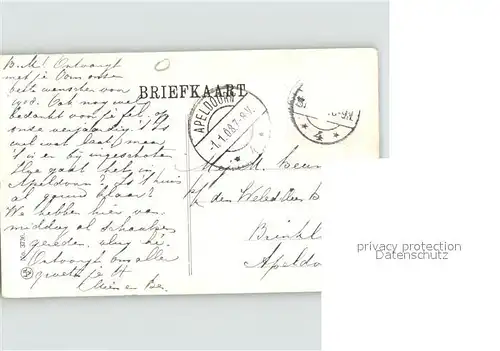 B.M! Ontvangt
met je Oom onze
beste wenschen voor
1908. Ook nog wel
bedankt voor je fel. op
onze verjaardag. 't Is
wel wat laat, maar
't is er bij ingeschoten
Hoe gaat het in
Apeldoorn? Is 't huis
al gauw klaar?
We hebben hier van
middag al schaatsen
gereden.
Ontvangt ons aller
groeten je
en
BRIEFKAART
APELDOORN
-1.1.08.7-8.V.
4
Mej. M.
p/a den WelEd. Heer
Brinkl
Apeldo
privacy protection
Datenschutz